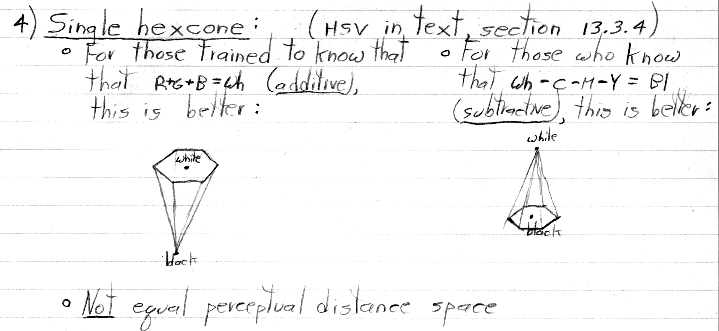 4) Single hexcone: (HSV in text, section 13.3.4)
° For those trained to know that
that R+G+B=Wh (additive),
this is better:
° For those who know
that Wh-C-M-Y = Bl
(subtractive), this is better:
white
black
white
black
° Not equal perceptual distance space